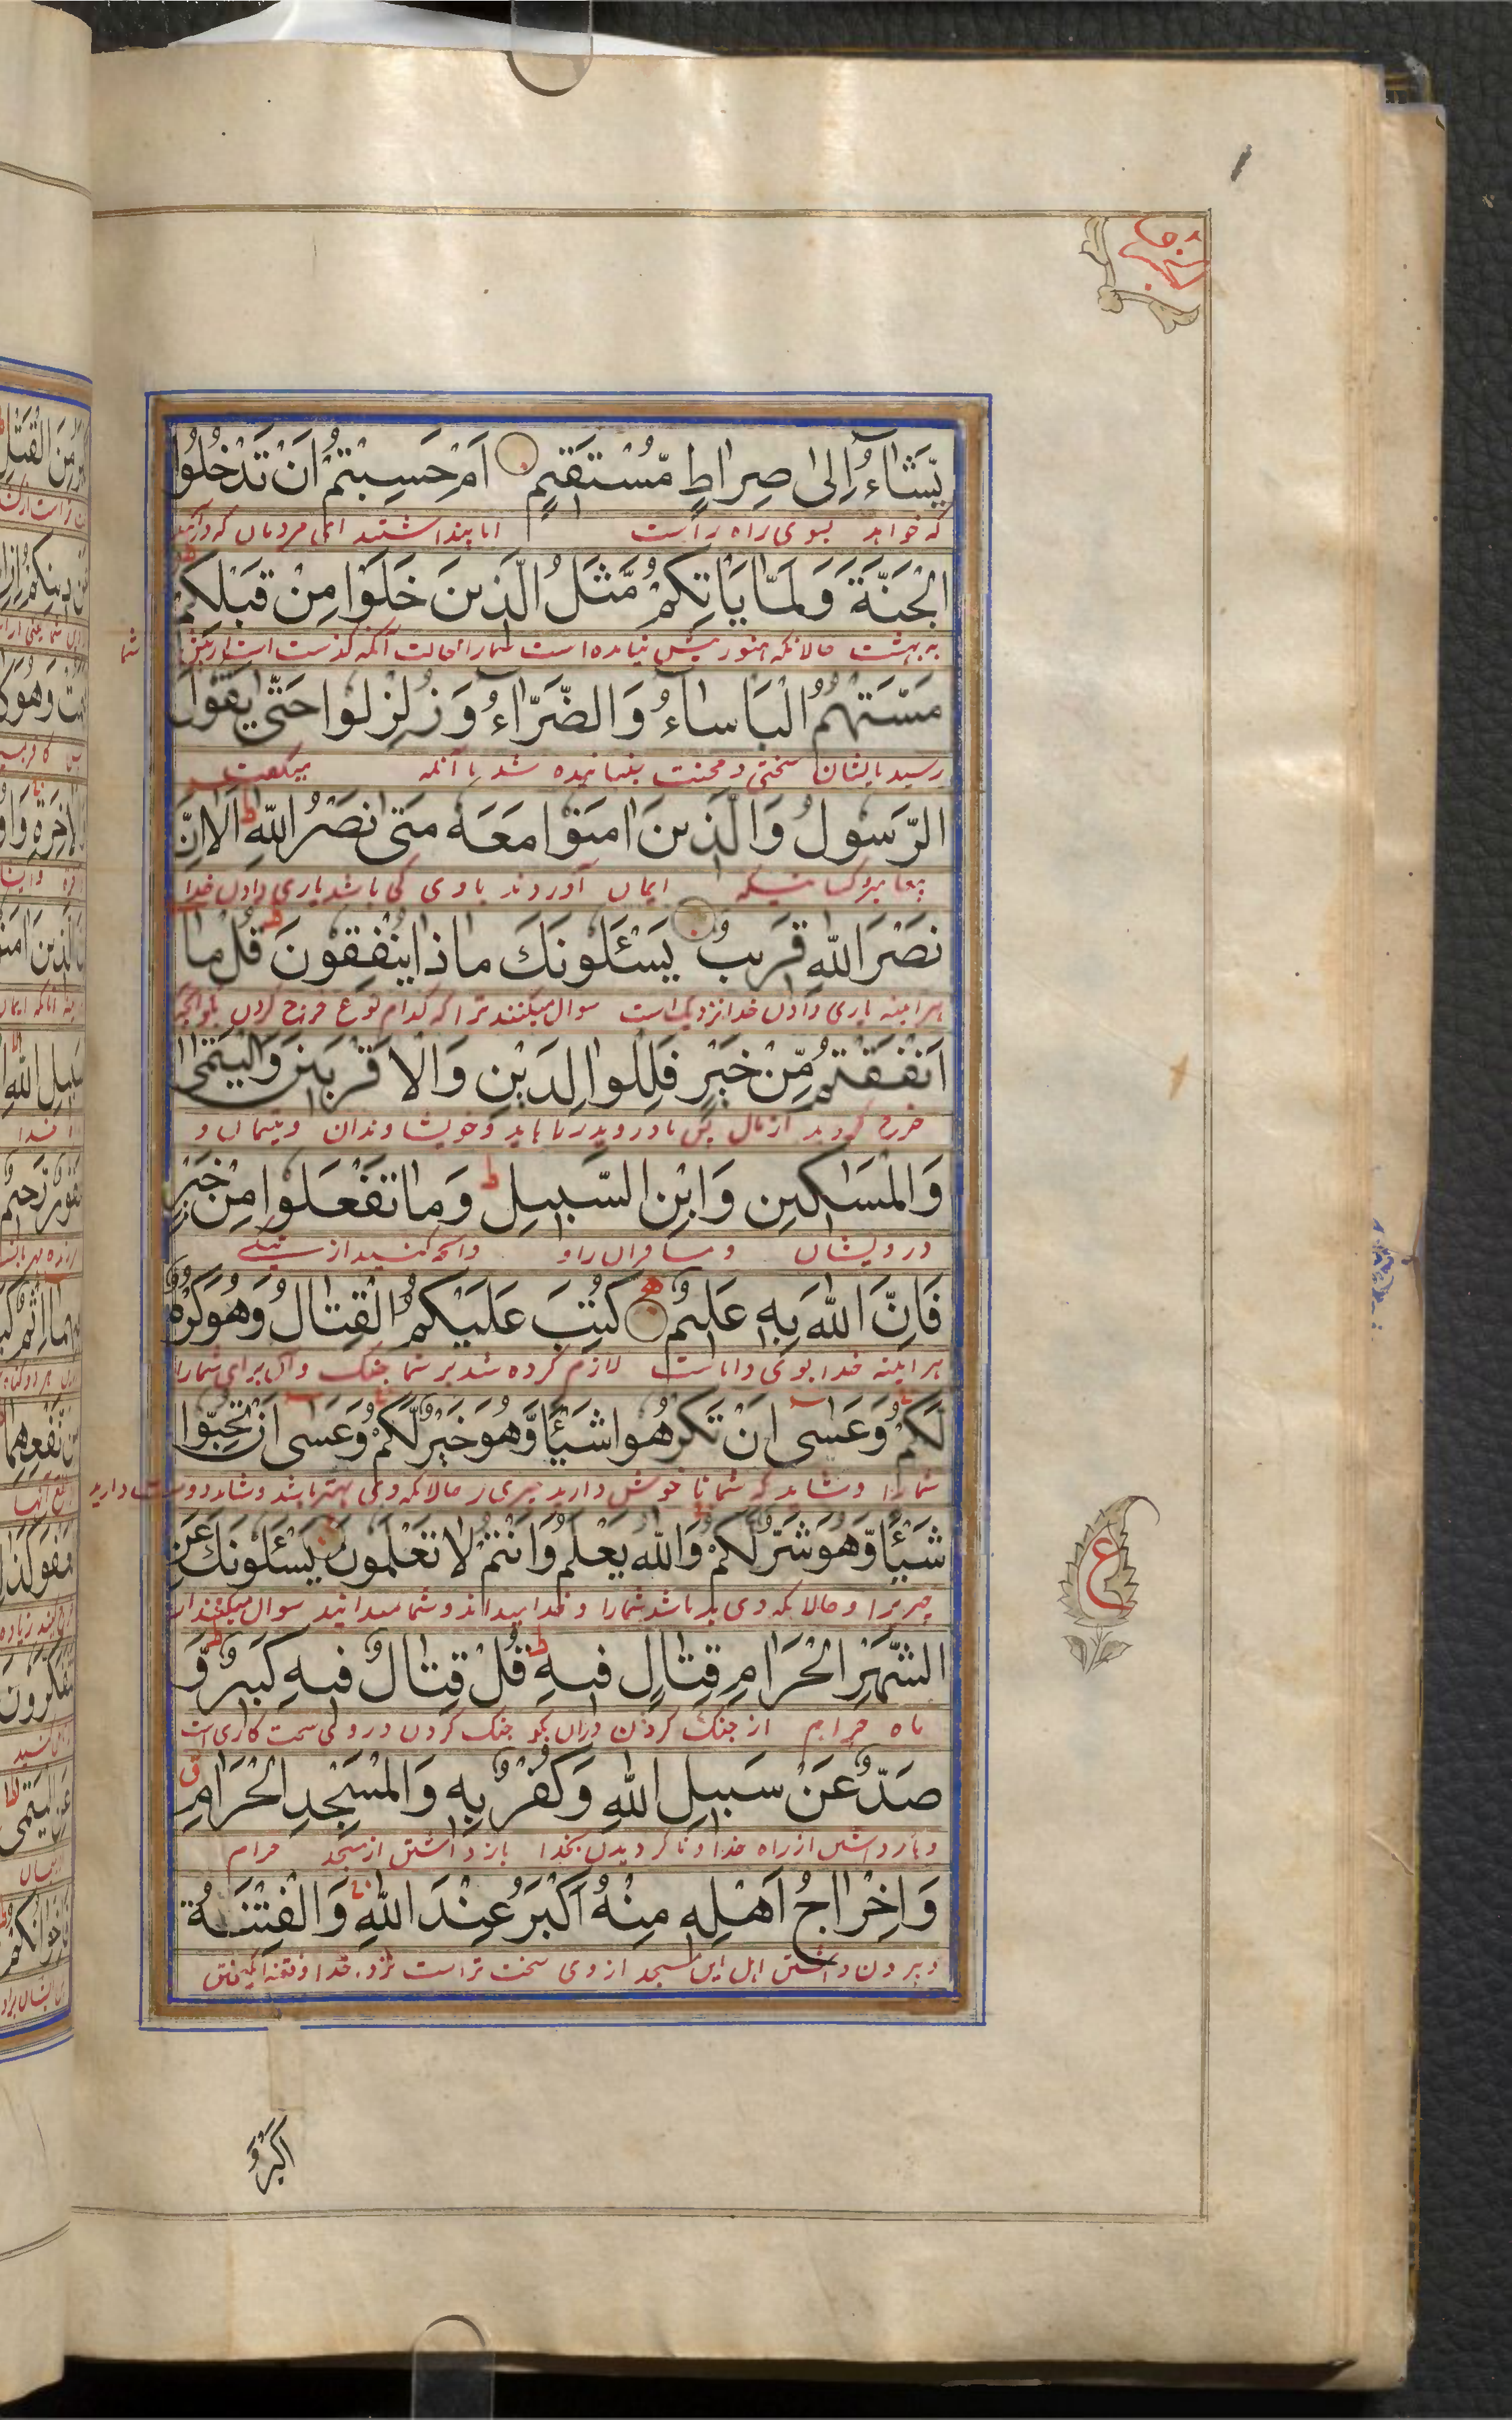 يَّشَاءُ اِلىٰ صِراطٍ مُّسْتَقيمٍ اَمْ حَسِبْتُمْ اَنْ تَدْخُلُوا
که خواهد بسوی راه راست اما پنداشتید ای مردمان که درآئید
الْجَنَّةَ وَلَمَّا يَاْتِكُمْ مَّثَلُ الَّذينَ خَلَوْا مِنْ قَبْلِكُمْ
به بهشت حالانکه هنوز پیش نیامده است شمارا حالت آنکه گذشت است از پیش
شما
مَسَّتْهُمُ الْبَاْساءُ وَالضَّرَّاءُ وَزُلْزِلُوا حَتّٰى يَقُولَ
رسید بایشان سختی و محنت بغمانیده شد تا آنکه میگفت
الرَّسُولُ وَالَّذينَ امَنُوا مَعَهُ مَتىٰ نَصْرُ اللّٰهِ اَلَا اِنَّ
ایمان آوردند باوی کی باشد یاری دادن خدا
نَصْرَ اللّٰهِ قَريبٌ يَسْئَلُونَكَ ماذا يُنْفِقُونَ قُلْ ما
هرآینه یاری دادن خدا نزدیک است سوال میکنند ترا که کدام نوع خرج کردن
اَنْفَقْتُمْ مِّنْ خَيْرٍ فَلِلْوالِدَيْنِ وَالْاَقْرَبينَ وَالْيَتٰمىٰ
خرج کردید از مال پس مادر و پدر را باید و خویشاوندان و یتیمان و
وَالْمَسٰاكينِ وَابْنِ السَّبيلِ وَما تَفْعَلُوا مِنْ خَيْرٍ
درویشان و مسافران را و آنچه کنید از نیکی
فَاِنَّ اللّٰهَ بِهٖ عَليمٌ كُتِبَ عَلَيْكُمُ الْقِتالُ وَهُوَ كُرْهٌ
هرآینه خدا بوی داناست لازم کرده شد بر شما جنک و آن برای شمارا
لَّكُمْ وَعَسىٰ اَنْ تَكْرَهُوا شَيْئًا وَّهُوَ خَيْرٌ لَّكُمْ وَعَسىٰ اَنْ تُحِبُّوا
شمارا و شاید که شما نا خوش دارید چیزی را حالانکه وی بهتر باشد و شاید دوست دارید
شَيْئًا وَّهُوَ شَرٌّ لَّكُمْ وَاللّٰهُ يَعْلَمُ وَاَنْتُمْ لا تَعْلَمُونَ يَسْئَلُونَكَ عَنِ
چیزی را و حالانکه وی بد باشد شمارا و خدا میداند و شما نمیدانید سوال میکنند از
الشَّهْرِ الْحَرامِ قِتالٍ فيهِ قُلْ قِتالٌ فيهِ كَبيرٌ وَّ
ماه حرام از جنک کردن دران بکو جنک کردن در وی سخت کاری است
صَدٌّ عَنْ سَبيلِ اللّٰهِ وَكُفْرٌ بِهٖ وَالْمَسْجِدِ الْحَرامِ
و باز داشتن از راه خدا و نا کرویدن بخدا باز داشتن از مسجد حرام
وَاِخْراجُ اَهْلِهٖ مِنْهُ اَكْبَرُ عِنْدَ اللّٰهِ وَالْفِتْنَةُ
و بیرون داشتن اهل این مسجد از وی سخت تر است نزد خدا و فتنه
ع
اَكْبَرُ